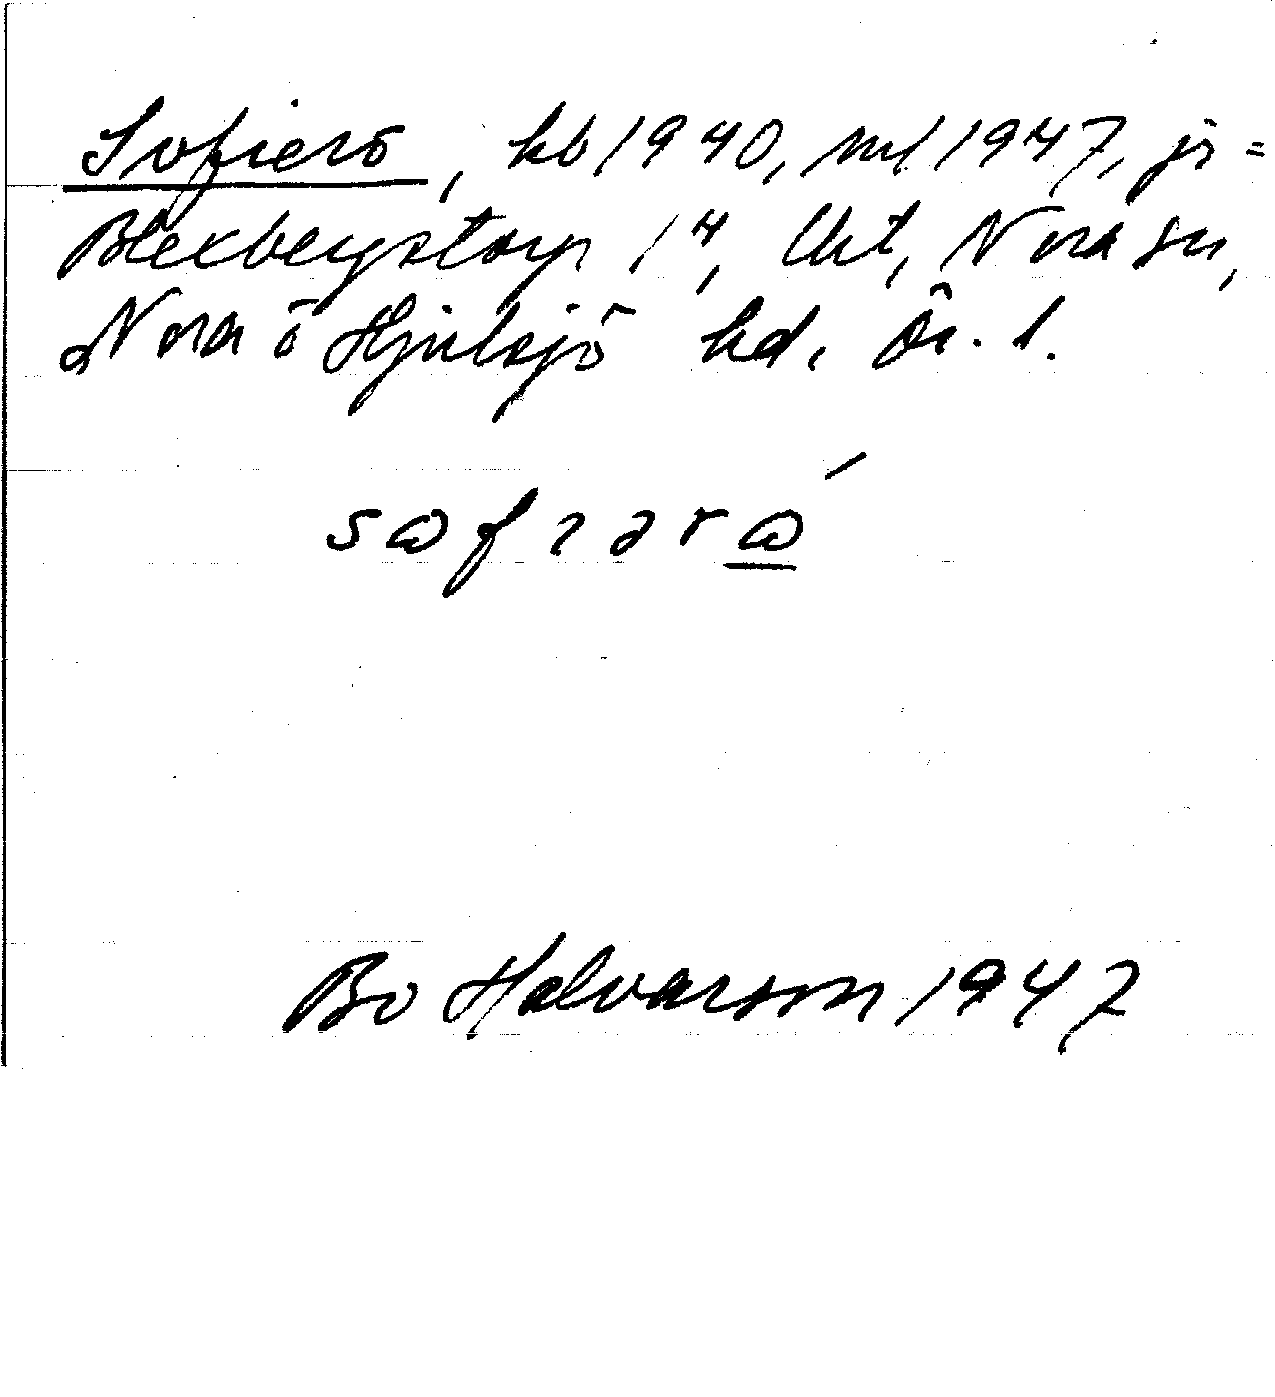 Sofierö, kb 1940, ml 1947, jr =
Blexbergstorp 1⁴, Uvt, Nora sn,
Nora ö Hjulsjö hd. Ör. l.
sɷfıərɷ́
Bo Halvarson 1947